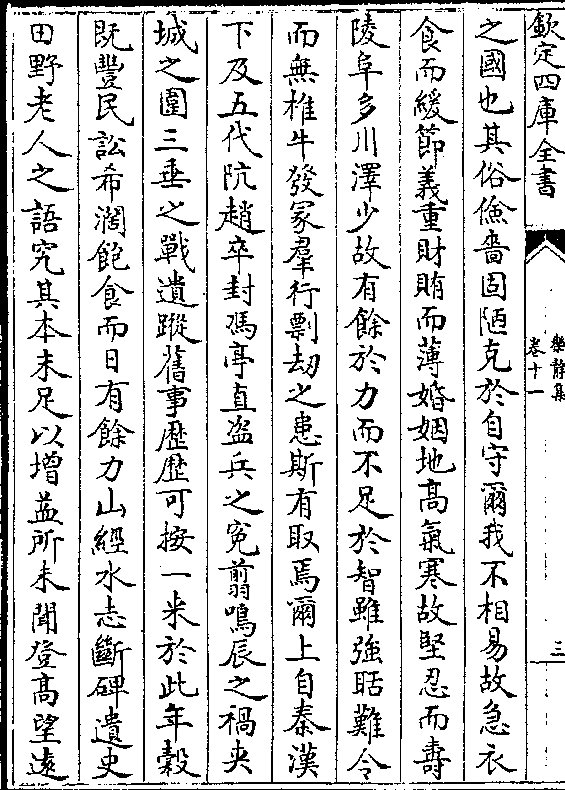 欽定四庫全書
樂静集
卷十一
三
之國也其俗儉嗇固陋克於自守爾我不相易故急衣
食而緩節義重財賄而薄婚姻地高氣寒故堅忍而壽
陵阜多川澤少故有餘於力而不足於智雖強聒難令
而無椎牛發冢羣行剽劫之患斯有取焉爾上自秦漢
下及五代阬趙卒封馮亭直盗兵之寃翦鳴辰之禍夾
城之圍三垂之戰遺蹤舊事歴歴可按一米於此年穀
既豐民訟希濶飽食而日有餘力山經水志斷碑遺史
田野老人之語究其本末足以增益所未聞登高望遠